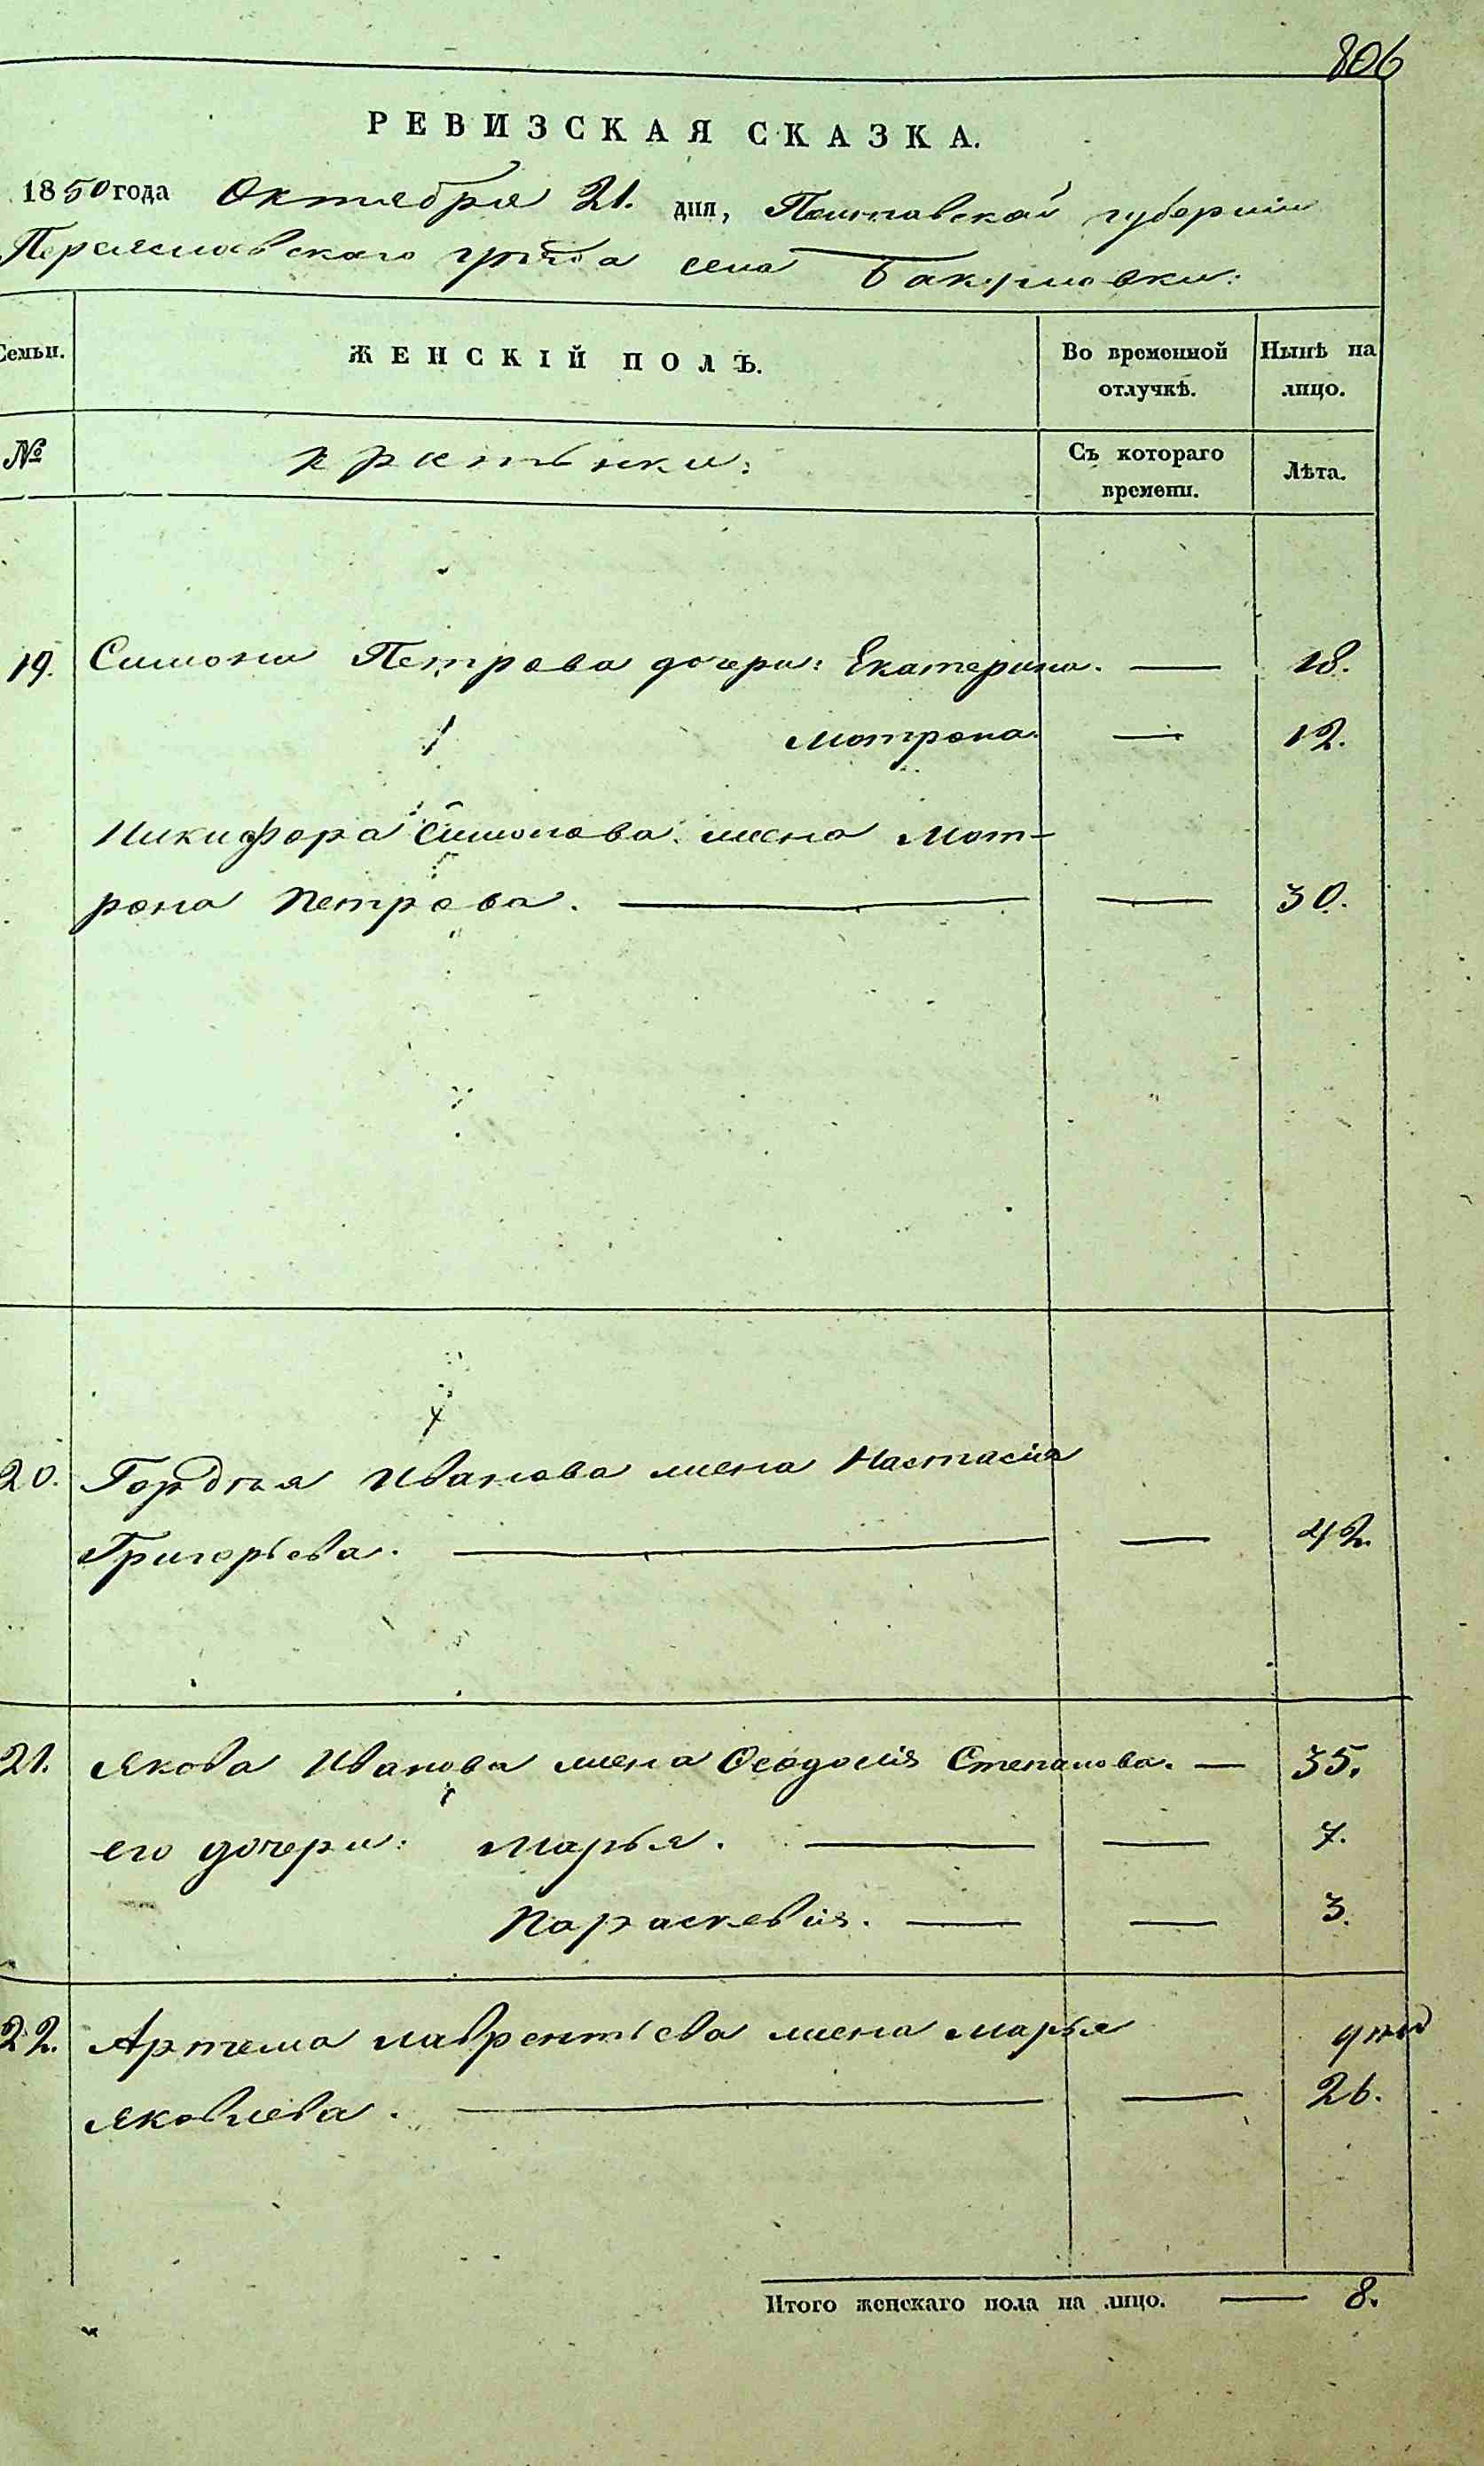 806
РЕВИЗСКАЯ СКАЗКА.
1850 года Октября 21. дня, Полтавской губернии
Переяславского уѣзда села Бакумовки:
Семьи. ЖЕНСКІЙ ПОЛЪ. Во временной отлучкѣ. Нынѣ на лицо.
№ крестьянки: Съ котораго времени. Лѣта.
19. Симона Петрова дочери: Екатерина. — 18.
Мотрона. — 12.
Никифора Симонова жена Мот-
рона Петрова. — — 30.
20. Гордѣя Иванова жена Настасія
Григорьева. — — 42.
21. Якова Иванова жена Ѳеодосія Степанова. — 35.
его дочери: Марья. — — 7.
Параскевія. — — 3.
22. Артема Лаврентьева жена Марья
Яковлева. — — 26.
Итого женскаго пола на лицо. — 8.